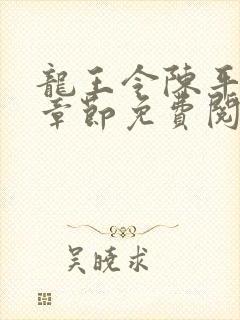 龍王令陳平
章節免費閱
吴晓求